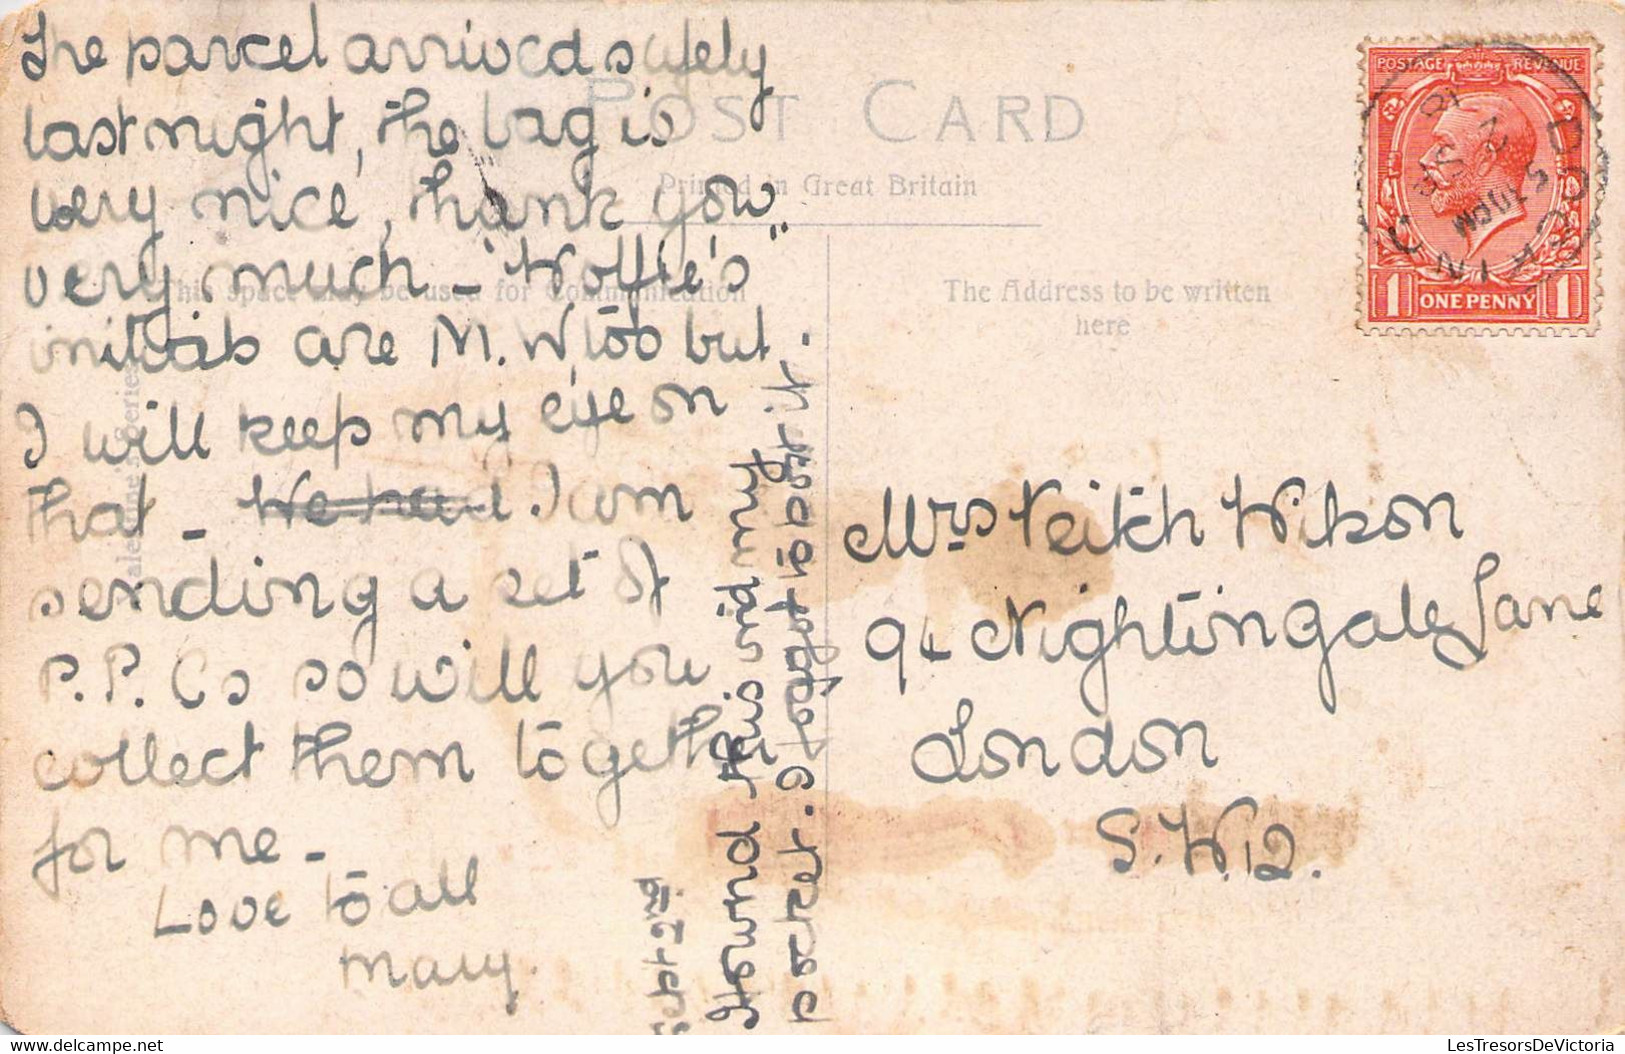 The parcel arrived safely
last night, the bag is
very nice, thank you
very much - "Wolfie's"
initials are M. W too but
I will keep my eye on
that - We have. I am
sending a set of
P.P. Cs so will you
collect them together
for me -
Love to all
Mary.
Sept 2nd
I found this in my
pocket. I forgot to post it.
POST CARD
Printed in Great Britain
This space may be used for Communication
The Address to be written
here
POSTAGE REVENUE
1 ONE PENNY 1
DORKING
Mrs Veitch Wilson
94 Nightingale Lane
London
S.W.12.
delcampe.net
LesTresorsDeVictoria